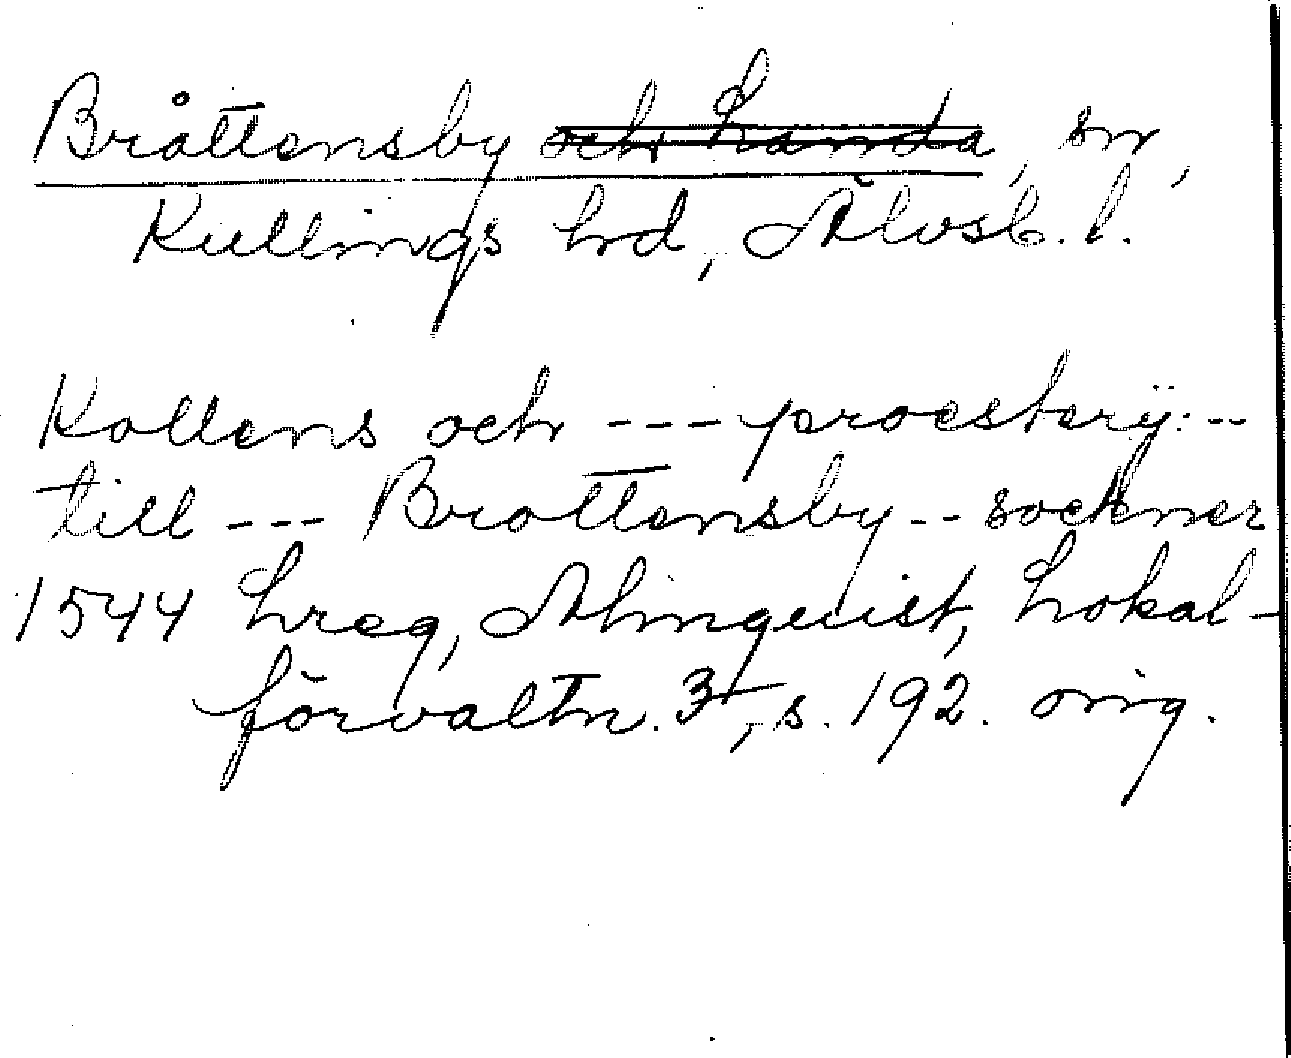 Bråttensby och Landa, sn,
Kullings hd, Älvsb. l.
Kollens och --- proesterÿ: --
till --- Brottensby -- sockner
1544 Lreg, Almquist, Lokal-
förvaltn. 3, s. 192. orig.